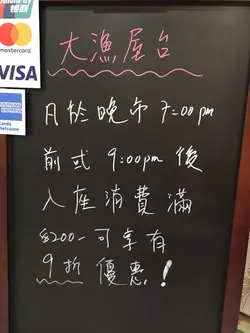 UnionPay
银联
mastercard
VISA
AMERICAN
EXPRESS
Cards
Welcome
大漁屋台
凡於晚市 7:00pm
前或 9:00pm 後
入座消費滿
$200-可享有
9折優惠!